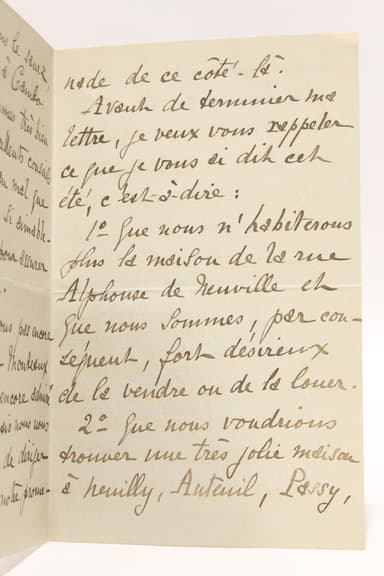 ous le savez,
à Cambo
mes très bien
ellents conseils
un mal que
si aimable-
pour assurer
ous pas encore
encore
sis nous nous
de diriger
notre prome-
nade de ce côté-là.
Avant de terminer ma
lettre, je veux vous rappeler
ce que je vous ai dit cet
été, c'est-à-dire :
1º Que nous n'habiterons
plus la maison de la rue
Alphonse de Neuville et
que nous sommes, par con-
séquent, fort désireux
de la vendre ou de la louer.
2º Que nous voudrions
trouver une très jolie maison
à Neuilly, Auteuil, Passy,